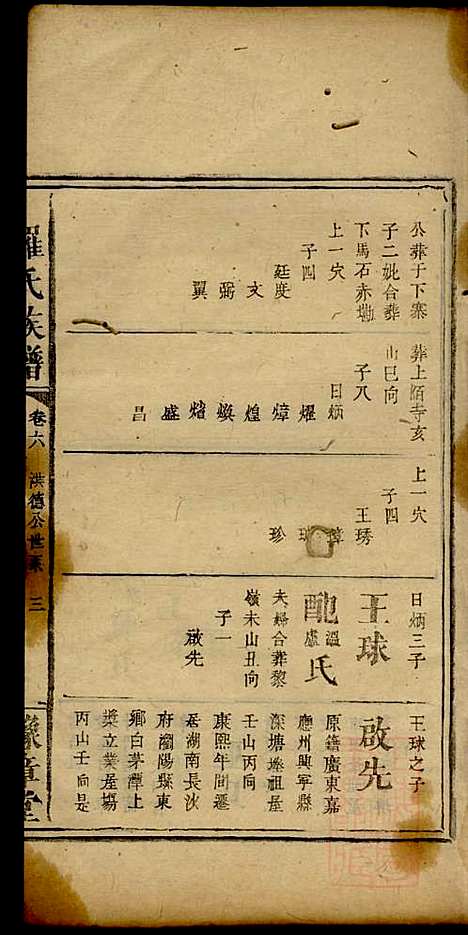 公葬于下寨
子二妣合葬
下馬石赤坳
上一穴
子四
廷度
文
弼
翼
葬上陌寺亥
山巳向
子八
日炳
燿
煒
煌
煥
熖
盛
昌
上一穴
子四
王琇
珍
日炳三子
王球
配溫盧氏
夫婦合葬黎
嶺未山丑向
子一
啟先
王球之子
啟先
原籍廣東嘉
應州興寧縣
深塘㙟祖屋
壬山丙向
康熙年間遷
居湖南長沙
府瀏陽縣東
鄉白茅潭上
槳立業屋場
丙山壬向是
羅氏族譜
卷六
洪德公世系
三
豫章堂